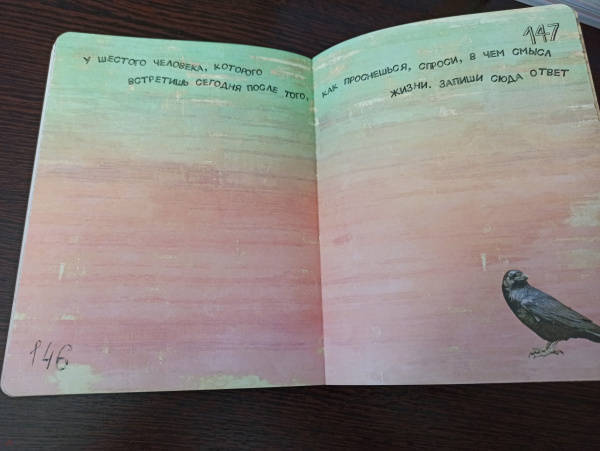 147
У ШЕСТОГО ЧЕЛОВЕКА, КОТОРОГО
ВСТРЕТИШЬ СЕГОДНЯ ПОСЛЕ ТОГО,
КАК ПРОСНЕШЬСЯ, СПРОСИ, В ЧЕМ СМЫСЛ
ЖИЗНИ. ЗАПИШИ СЮДА ОТВЕТ
146